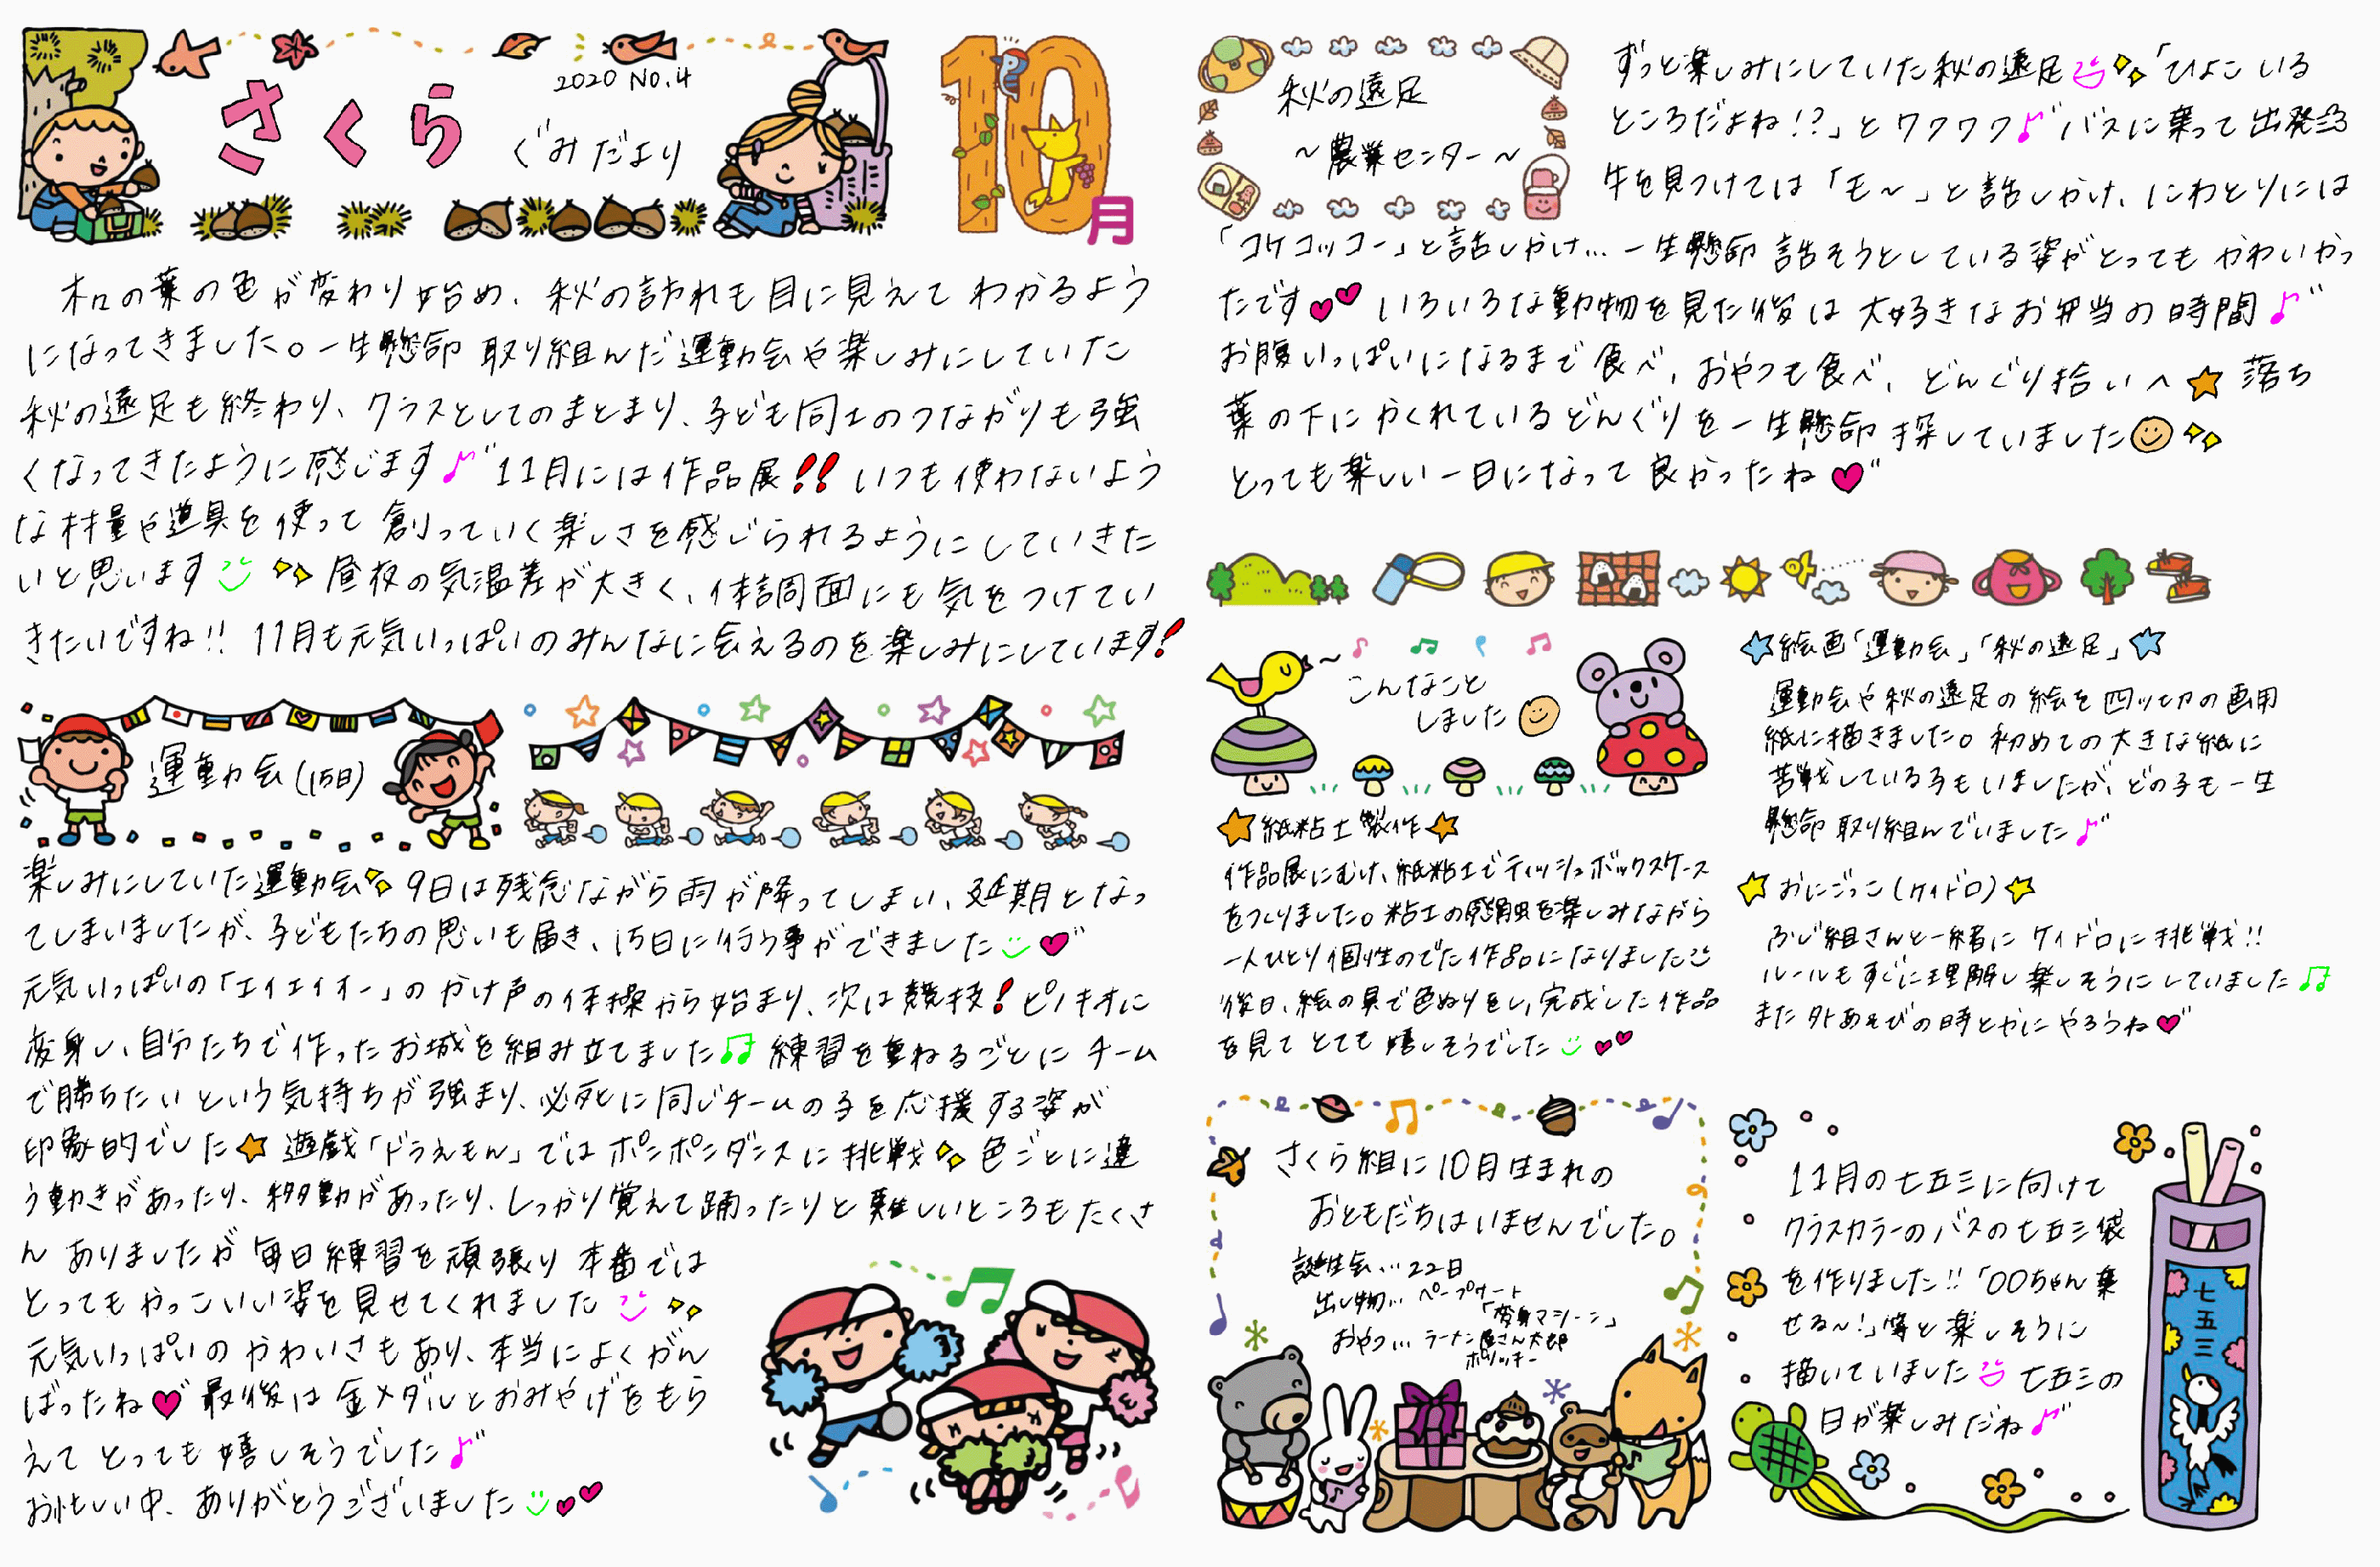 2020 No.4
さくら
ぐみだより
10月
木の葉の色が変わり始め、秋の訪れも目に見えてわかるよう
になってきました。一生懸命取り組んだ運動会や楽しみにしていた
秋の遠足も終わり、クラスとしてのまとまり、子ども同士のつながりも強
くなってきたように感じます 11月には作品展!! いつも使わないよう
な材量や道具を使って創っていく楽しさを感じられるようにしていきた
いと思います 昼夜の気温差が大きく、体調面にも気をつけてい
きたいですね!! 11月も元気いっぱいのみんなに会えるのを楽しみにしています!
運動会(15日)
楽しみにしていた運動会 9日は残念ながら雨が降ってしまい、延期となっ
てしまいましたが、子どもたちの思いも届き、15日に行う事ができました
元気いっぱいの「エイエイオー」のかけ声の体操から始まり、次は競技!ピノキオに
変身し、自分たちで作ったお城を組み立てました 練習を重ねるごとにチーム
で勝ちたいという気持ちが強まり、必死に同じチームの子を応援する姿が
印象的でした 遊戯「ドラえもん」ではポンポンダンスに挑戦 色ごとに違
う動きがあったり、移動があったり、しっかり覚えて踊ったりと難しいところもたくさ
んありましたが毎日練習を頑張り本番では
とってもかっこいい姿を見せてくれました
元気いっぱいのかわいさもあり、本当によくがん
ばったね 最後は金メダルとおみやげをもら
えてとっても嬉しそうでした
お忙しい中、ありがとうございました
秋の遠足
～農業センター～
ずっと楽しみにしていた秋の遠足 「ひよこいる
ところだよね!?」とワクワク バスに乗って出発
牛を見つけては「モ～」と話しかけ、にわとりには
「コケコッコー」と話しかけ…一生懸命話そうとしている姿がとってもかわいかっ
たです いろいろな動物を見た後は大好きなお弁当の時間
お腹いっぱいになるまで食べ、おやつも食べ、どんぐり拾いへ 落ち
葉の下にかくれているどんぐりを一生懸命探していました
とっても楽しい一日になって良かったね
こんなこと
しました
☆紙粘土製作☆
作品展にむけ、紙粘土でティッシュボックスケース
をつくりました。粘土の感触を楽しみながら
一人ひとり個性のでた作品になりました
後日、絵の具で色ぬりをし、完成した作品
を見てとても嬉しそうでした
☆絵画「運動会」「秋の遠足」☆
運動会や秋の遠足の絵を四ツ切の画用
紙に描きました。初めての大きな紙に
苦戦している子もいましたが、どの子も一生
懸命取り組んでいました
☆おにごっこ(ケイドロ)☆
ふじ組さんと一緒にケイドロに挑戦!!
ルールもすぐに理解し楽しそうにしていました
また外あそびの時とかにやろうね
さくら組に10月生まれの
おともだちはいませんでした。
誕生会…22日
出し物…ペープサート
「変身マシーン」
おやつ…ラーメン屋さん太郎
ポリッキー
11月の七五三に向けて
クラスカラーのバスの七五三袋
を作りました!!「〇〇ちゃん乗
せる～!」等と楽しそうに
描いていました 七五三の
日が楽しみだね
七五三